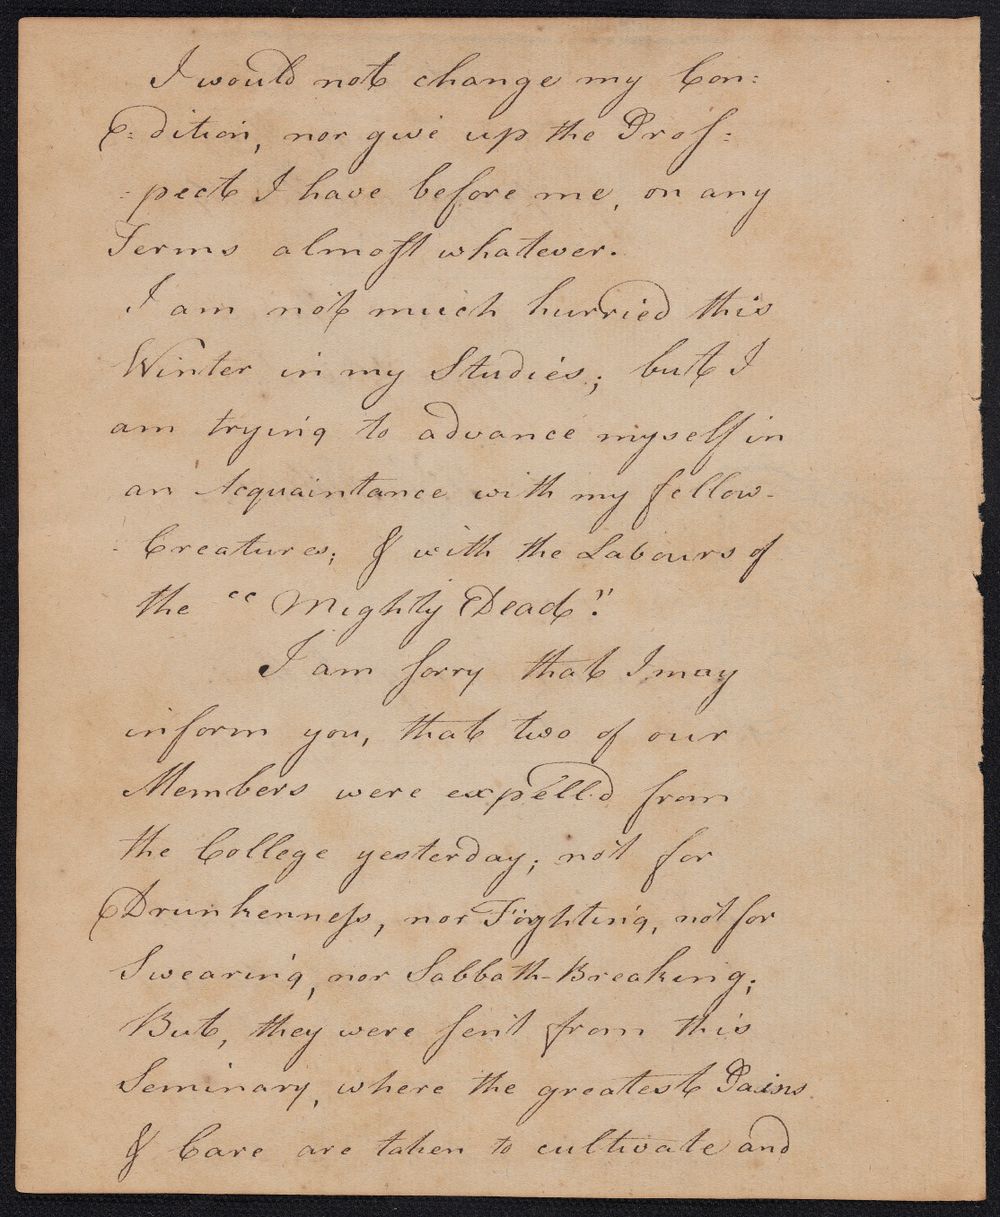 I would not change my Con:
:dition, nor give up the Proſ:
-pect I have before me, on any
Terms almoſt whatever.
I am not much hurried this
Winter in my Studies; but I
am trying to advance myself in
an Acquaintance with my fellow-
-Creatures; & with the Labours of
the "Mighty Dead".
I am ſorry that I may
inform you, that two of our
Members were expell'd from
the College yesterday; not for
Drunkenneſs, nor Fighting, not for
Swearing, nor Sabbath-Breaking;
But, they were ſent from this
Seminary, where the greatest Pains
& Care are taken to cultivate and